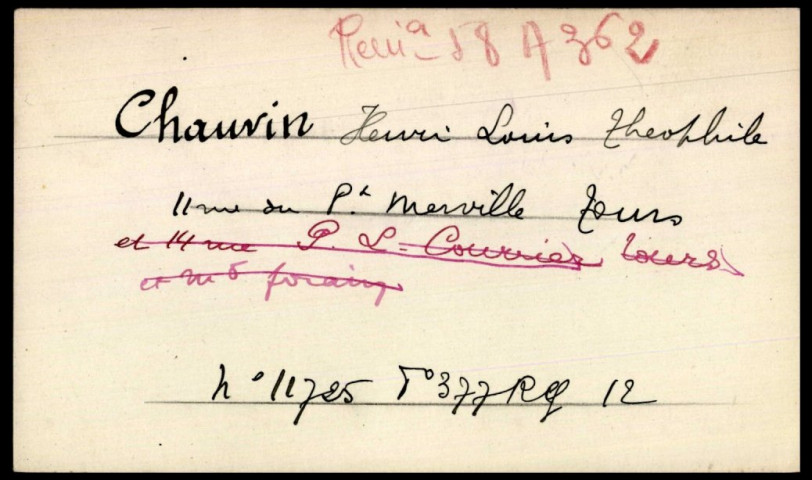 58 A 362
Chauvin Henri Louis Théophile
11 rue du Pt Merville Tours
et 14 rue P. L. Courrier Tours
et md forain
N° 11725 F° 377 RG 12